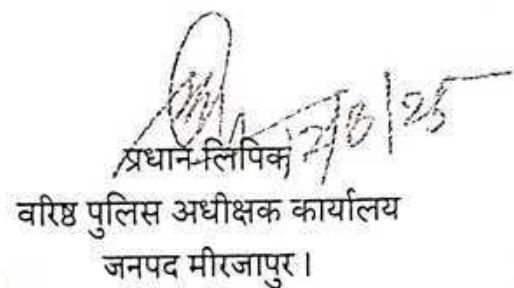 प्रधान लिपिक
वरिष्ठ पुलिस अधीक्षक कार्यालय
जनपद मीरजापुर।